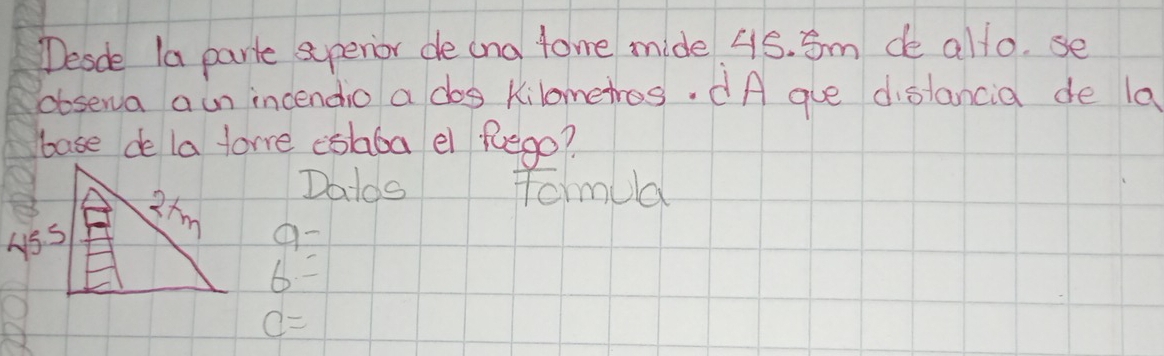 Desde la parte superior de una torre mide 45.5m de alto. se
observa a un incendio a dos Kilometros. ¿A que distancia de la
base de la torre estaba el fuego?
Datos Formula
2km
45.5
a=
b=
c=